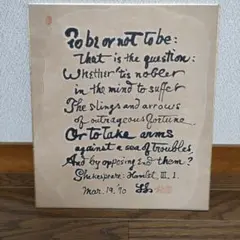 To be or not to be:
That is the question:
Whether 'tis nobler
in the mind to suffer
The slings and arrows
of outrageous fortune
Or to take arms
against a sea of troubles,
And by opposing end them?
Shakespeare: Hamlet, III, 1.
Mar. 19, '70